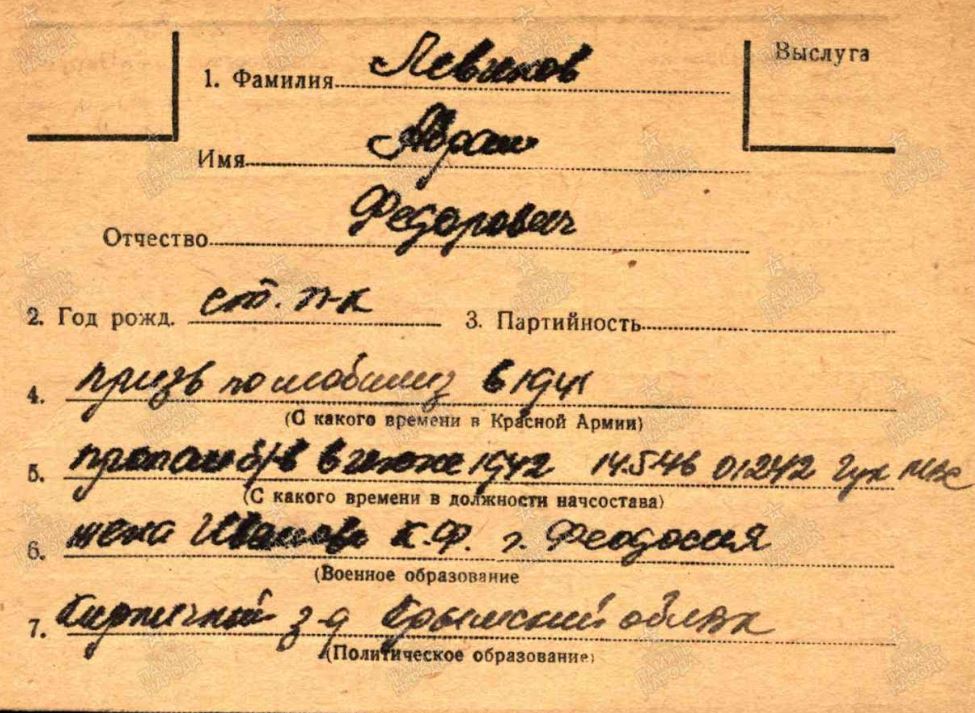 Выслуга
1. Фамилия Левиков
Имя Абрам
Отчество Федорович
2. Год рожд. ст. п-к 3. Партийность
4. призв по мобилиз в 1941
(С какого времени в Красной Армии)
5. пропал б/в в июне 1942 14546 01.2.42 гук нкс
(С какого времени в должности начсостава)
6. жена К.Ф. г. Феодосия
(Военное образование
7. Кирпичный з-д Крымский
(Политическое образование)